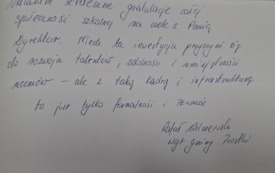 serdecznie gratuluję całej
społeczności szkolnej na czele z Panią
Dyrektor. Niech ta inwestycja przyczyni się
do rozwoju talentów, zdolności i umiejętności
uczniów – ale z taką kadrą i infrastrukturą
to już tylko formalność i
Rafał
Wójt Gminy